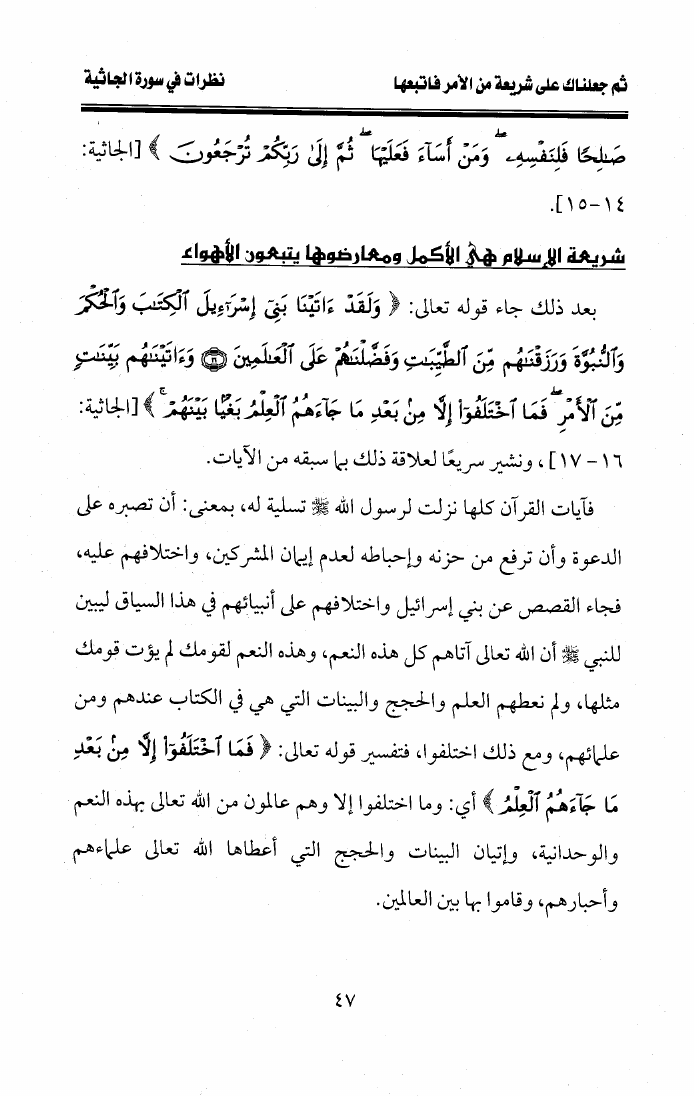 ثم جعلناك على شريعة من الأمر فاتبعها
نظرات في سورة الجاثية
صَـٰلِحًا فَلِنَفْسِهِۦ ۖ وَمَنْ أَسَآءَ فَعَلَيْهَا ۖ ثُمَّ إِلَىٰ رَبِّكُمْ تُرْجَعُونَ ﴾ [الجاثية:
١٤-١٥].
شريعة الإسلام هي الأكمل ومعارضوها يتبعون الأهواء
بعد ذلك جاء قوله تعالى: ﴿ وَلَقَدْ ءَاتَيْنَا بَنِىٓ إِسْرَٰٓءِيلَ ٱلْكِتَـٰبَ وَٱلْحُكْمَ
وَٱلنُّبُوَّةَ وَرَزَقْنَـٰهُم مِّنَ ٱلطَّيِّبَـٰتِ وَفَضَّلْنَـٰهُمْ عَلَى ٱلْعَـٰلَمِينَ ۝١٦ وَءَاتَيْنَـٰهُم بَيِّنَـٰتٍ
مِّنَ ٱلْأَمْرِ ۖ فَمَا ٱخْتَلَفُوٓا۟ إِلَّا مِنۢ بَعْدِ مَا جَآءَهُمُ ٱلْعِلْمُ بَغْيًۢا بَيْنَهُمْ ۚ ﴾ [الجاثية:
١٦- ١٧]، ونشير سريعًا لعلاقة ذلك بما سبقه من الآيات.
فآيات القرآن كلها نزلت لرسول الله ﷺ تسلية له، بمعنى: أن تصبره على
الدعوة وأن ترفع من حزنه وإحباطه لعدم إيمان المشركين، واختلافهم عليه،
فجاء القصص عن بني إسرائيل واختلافهم على أنبيائهم في هذا السياق ليبين
للنبي ﷺ أن الله تعالى آتاهم كل هذه النعم، وهذه النعم لقومك لم يؤت قومك
مثلها، ولم نعطهم العلم والحجج والبينات التي هي في الكتاب عندهم ومن
علمائهم، ومع ذلك اختلفوا، فتفسير قوله تعالى: ﴿ فَمَا ٱخْتَلَفُوٓا۟ إِلَّا مِنۢ بَعْدِ
مَا جَآءَهُمُ ٱلْعِلْمُ ﴾ أي: وما اختلفوا إلا وهم عالمون من الله تعالى بهذه النعم
والوحدانية، وإتيان البينات والحجج التي أعطاها الله تعالى علماءهم
وأحبارهم، وقاموا بها بين العالمين.
٤٧